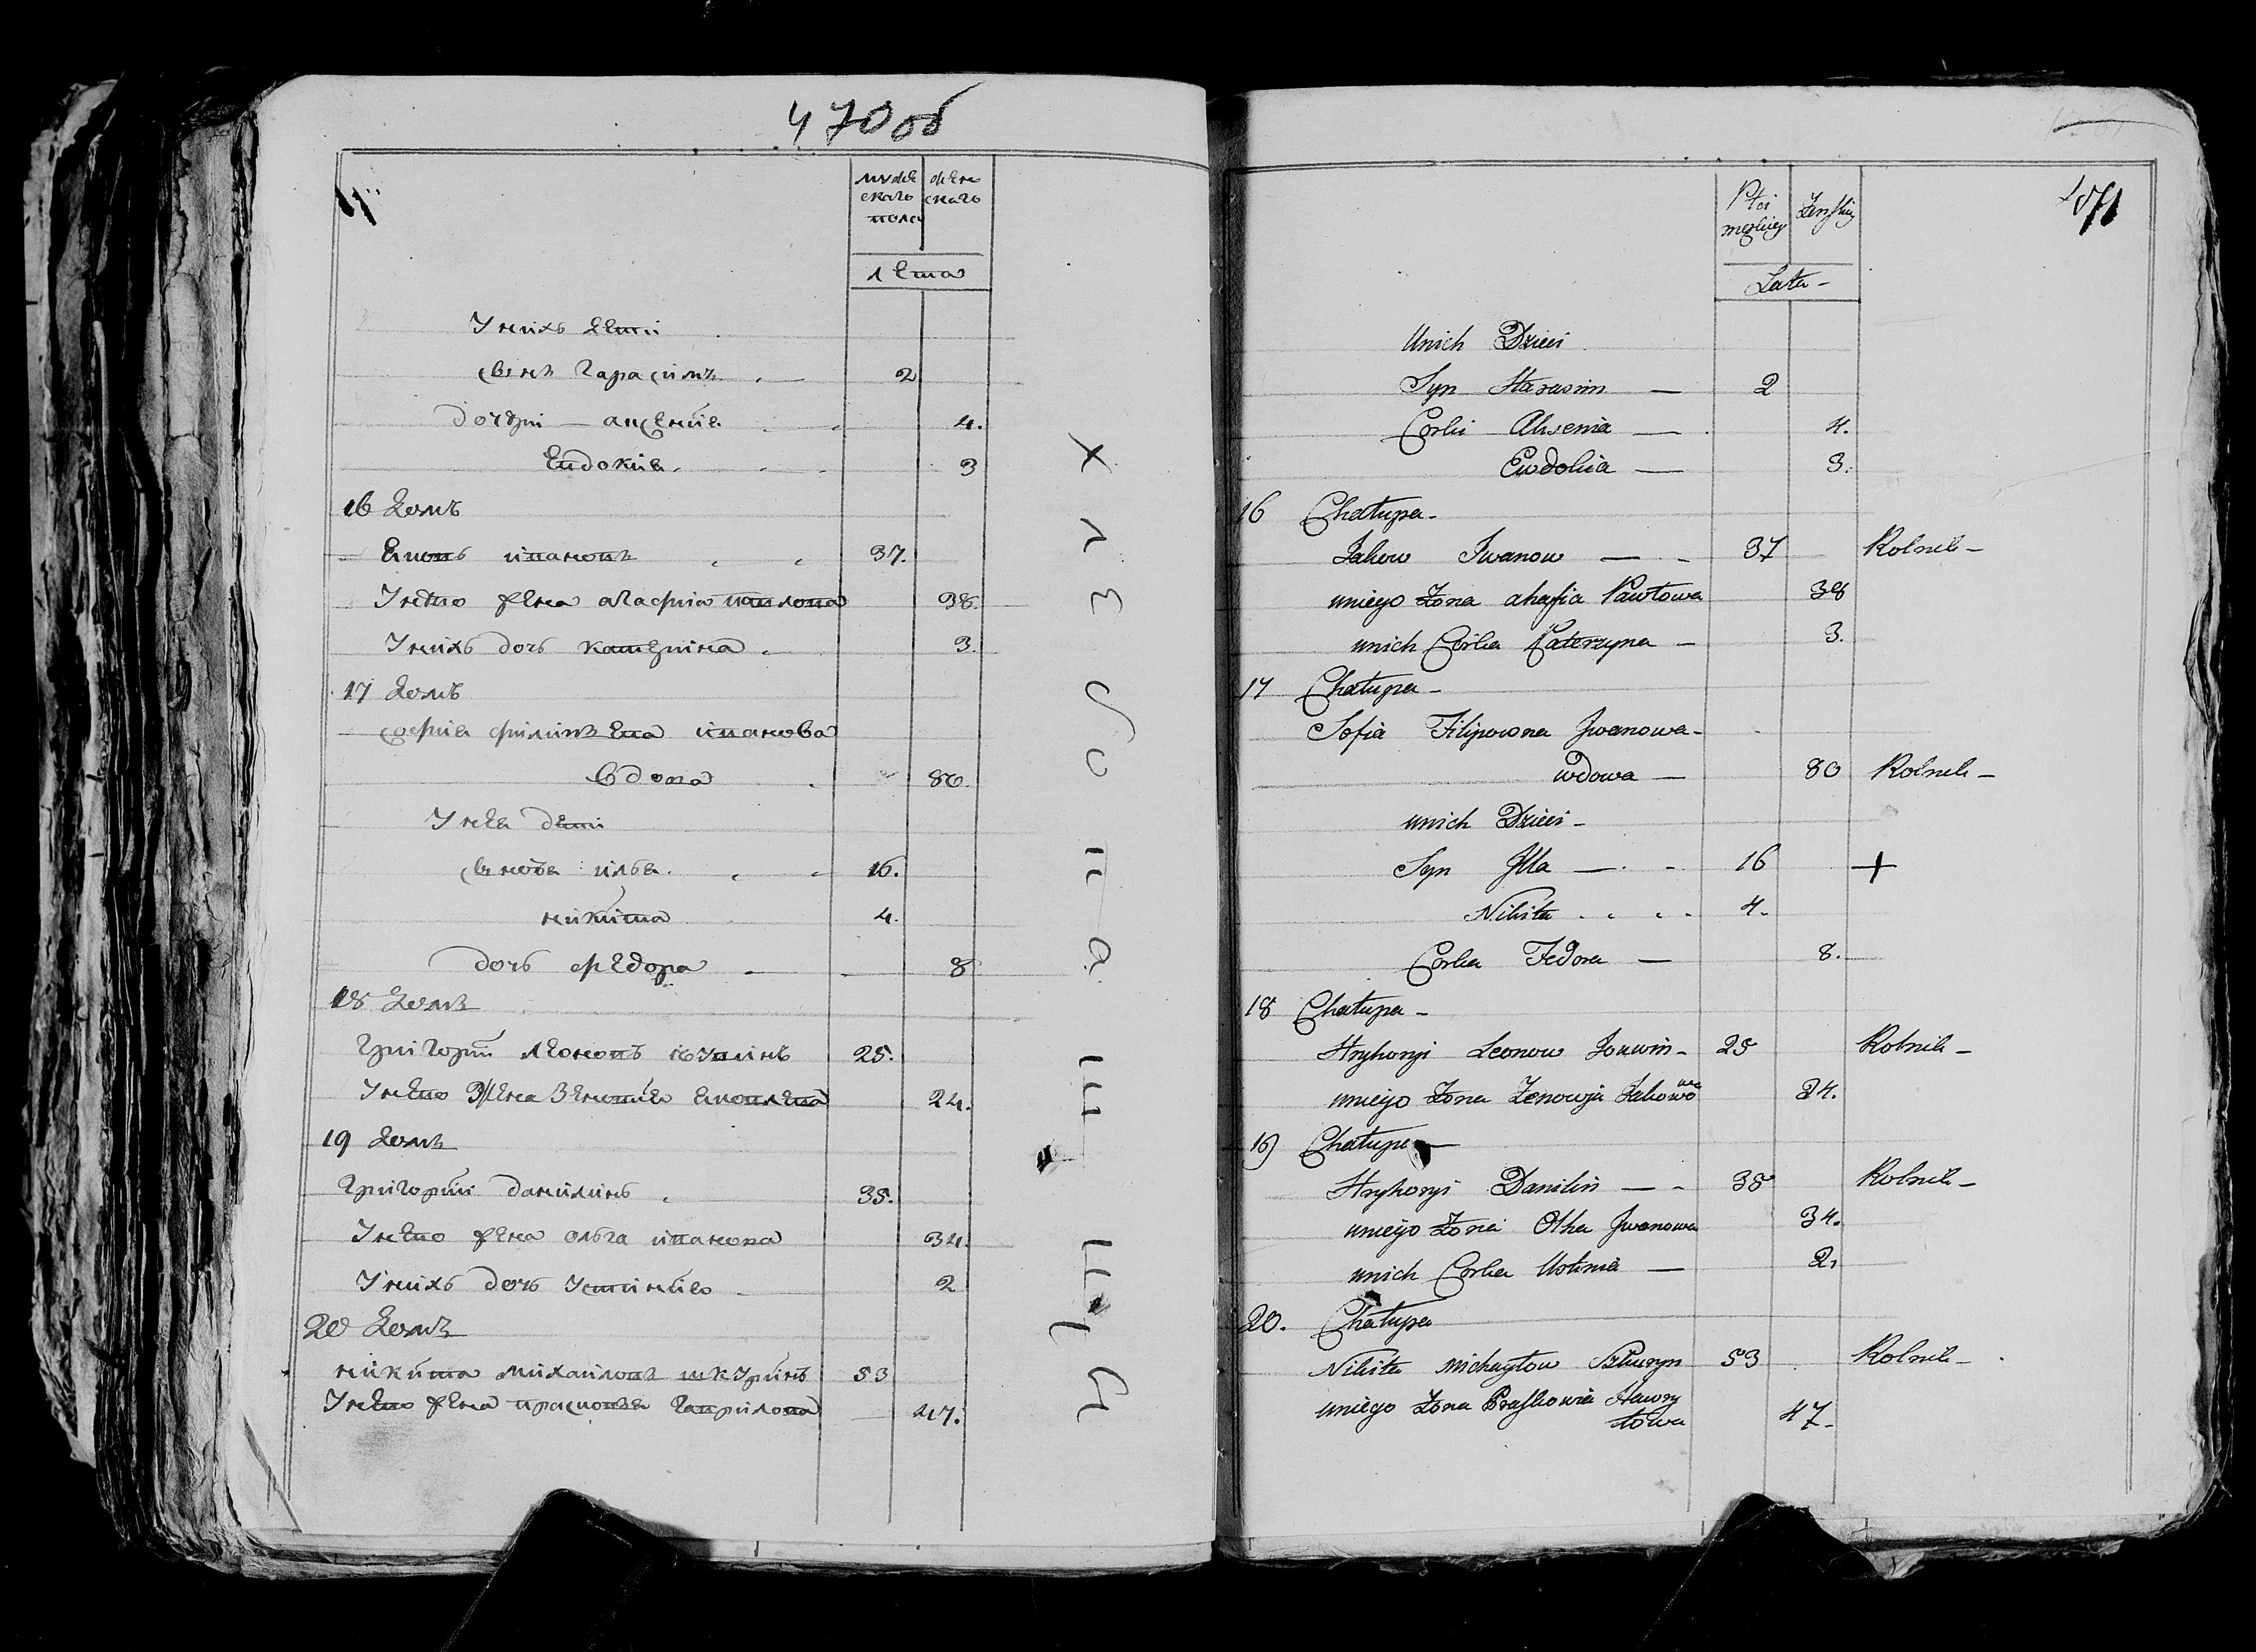 470 об
мужескаго пола
женскаго
лета
У нихъ дети
сынъ Гарасимъ 2
дочери — Аксения 4.
Евдокия 3
16 домъ
Яковъ Ивановъ 37.
У него жена Агафия Павлова 38.
У нихъ дочь Катерина 3.
17 домъ
София Филипьева Иванова
вдова 80.
У нея дети
сыновья Илья 16.
Никита 4.
дочь Федора 8
18 домъ
Григорий Леоновъ 25.
У него жена Зеновия Яковлева 24.
19 домъ
Григорий Данилинъ 35.
У него жена Ольга Иванова 34.
У нихъ дочь Устиния 2
20 домъ
Никита Михайловъ Шкуринъ 53
У него жена Прасковья Гаврилова 47.
471
Płci męskiey
Żenskiey
Lata -
Unich Dzieci
Syn Harasim — 2
Corki Aksenia — 4.
Ewdokia — 3.
16 Chałupa -
Jakow Iwanow — - 37 Rolnik -
uniego Żona ahafia Pawłowa 38
unich Córka Katerzyna — 3.
17 Chałupa -
Sofia Filipowna Jwanowa -
wdowa — 80 Rolnik -
unich Dzieci -
Syn Jlla — - 16 +
Nikita 4.
Corka Fedora — 8.
18 Chałupa -
Hryhoryi Leonow - 25 Rolnik -
uniego Żona Zenowja Jakowowa 24.
19 Chałupa —
Hryhoryi Danilin — - 35 Rolnik -
uniego Żona Olha Jwanowa 34.
unich Corka Ustinia — 2.
20. Chałupa
Nikita Michayłow Szkuryn 53 Rolnik -
uniego Żona Praskowia Hawry
łowa 47 -